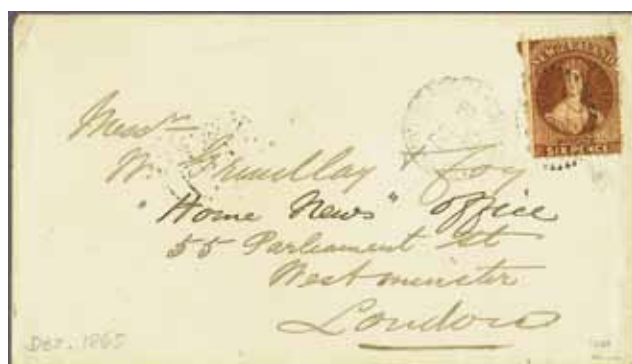 NEW ZEALAND
SIX PENCE
Messrs
Grindlay & Coy
"Home News" office
55 Parliament St
Westminster
London
Dec. 1865